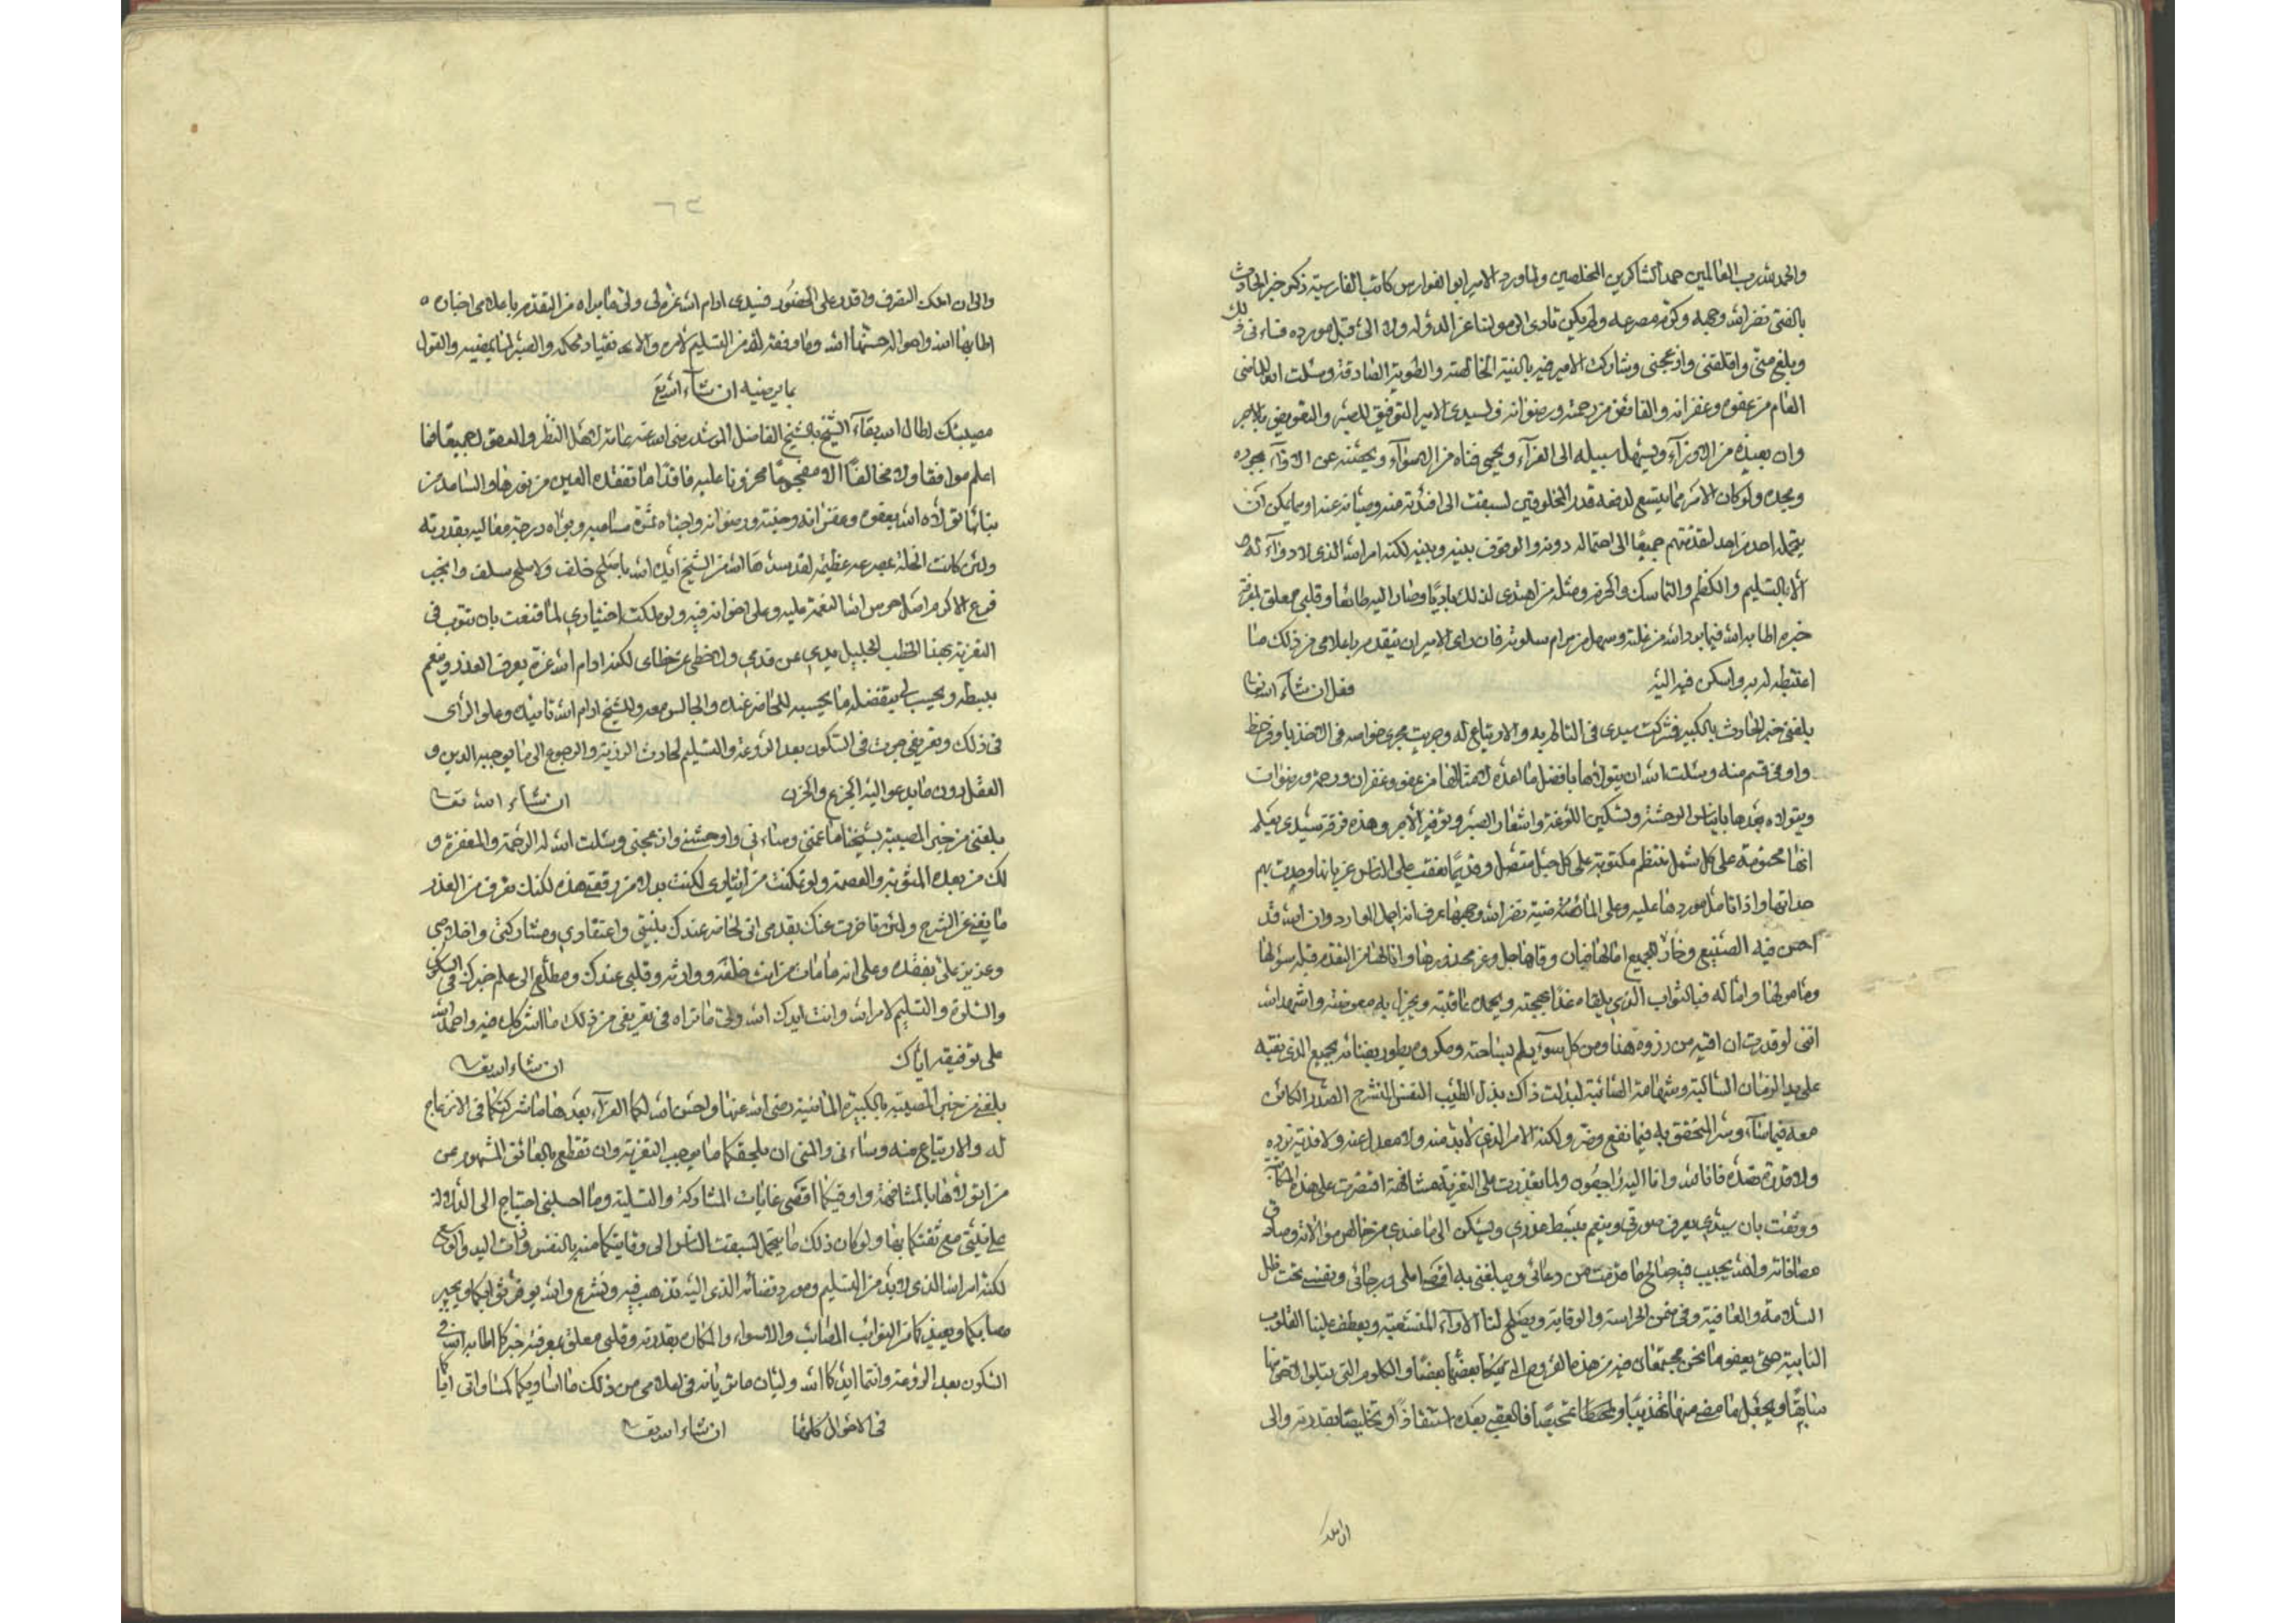 والحمد لله رب العالمين حمد الشاكرين المخلصين ولما ورد الامير ابو الفوارس كاتب الفارسية ذكر خبر الحادث
بالفتى نضر الله وجهه وكرم مصرعه ولم يكن تادى الى مولنا عز الدولة ولا الى قبل مورده فساءنى ذلك
وبلغ منى واقلقنى وازعجنى وشاركت الامير فيه بالنية الخالصة والطوية الصادقة وسئلت الله للماضى
العام من عفوه وغفرانه والفائق من رحمته ورضوانه ولسيدى الامير التوفيق للصبر والتعويض بالاجر
وان يعيذه من الارزاء ويسهل سبيله الى العزاء ويحمى فناه من الاسواء ويحصنه عن الادواء بجوده
ومجده ولو كان الامر مما يتسع لدفعه قدر المخلوقين لسبقت الى افتدائه منه وصيانته عنه او مما يمكن ان
يتحمله احد من احد لقدمتهم جميعا الى احتماله دونه والوقوف بينه وبينه لكنه امر الله الذى لا دواء له
الا بالتسليم والكظم والتماسك والحزم ومثله من اهتدى لذلك باديا وصار اليه طائعا وقلبى معلق بمعرفة
خبره اطابه الله فيما برد الله من غلته وسهل من مرام سلوته فان راى الامير ان يتقدم باعلامى من ذلك ما
اغتبط له به واسكن فيه اليه فعل ان شاء الله تعالى
بلغنى خبر الحادث بالكبيرة فشركت سيدى فى التالم به والارتياع له وجريت مجرى خواصه فى الاخذ باوفر حظ
واوفى قسم منه وسئلت الله ان يتولاها بافضل ما اعده لامثالها من عفو وغفران ورحمة ورضوان
ويتولاه بعدها بايناس الوحشة وتسكين اللوعة واشعار الصبر وتوفير الاجر وهذه فرقة سيدى يعلم
انها محتومة على كل شمل منتظم مكتوبة على كل حبل متصل وقديما نعقت على الناس غربانها وحديت بهم
حداتها واذا تامل موردها عليه وعلى الماضية نضر الله وجهها عرف انه اجمل الموارد وان الله قد
احسن فيه الصنيع وخار للجميع اما لها فبان وقاها جل وعز محذورها وانالها من التقدم قبله سؤلها
ومامولها واما له فبالثواب الذى يلقاه غدا بحجته ويحمد عاقبته ويجزل به معوضته واشهد الله
اننى لو قدرت ان اقيه من رزوه هذا ومن كل سوء يلم بساحته ومكروه يطور بفنائه بجميع الذى تقيه
على يد الزمان السالبة وسهامه الصائبة لبذلت ذاك بذل الطيب النفس المنشرح الصدر الكائن
معه فيما ساء وسر المتحقق به فيما نفع وضر ولكنه الامر الذى لا بد منه ولا معدل عنه ولا فدية ترده
ولا قدرة تصده فانا لله وانا اليه راجعون ولما تعذرت على التعزية مشافهة اقتصرت على هذه المكاتبة
ووثقت بان سيدى يعرف صورتى وينعم ببسط عذرى ويسكن الى ما عندى من خالص موالاته وصادق
مصافاته والله يجيب فيه صالح ما قدمت من دعائى ويبلغنى به اقصى املى ورجائى ونفسه تحت ظل
السلامة والعافية وفى ضمن الحراسة والوقاية ويصلح لنا الاراء المتشعبة ويعطف علينا القلوب
النابية حتى يعفو ما نحن مجتمعان فيه من هذه القروح التى ينكا بعضها بعضا والكلوم التى يتلو لاحق منها
سابقا ويجعل ما مضى منها تهذيبا ومحطا تمحيصا فالعقبى بعده استنقاذا وتخليصا بقدرته والى
ان املك
٦٣
والى ان املك التصرف واقدر على الحضور فسيدى ادام الله عزه ولى ما يراه من التقدم باعلامى اخباره
اطابها الله واحواله حسنها الله وما وفقه له من التسليم لامره والانقياد لحكمه والصبر لما يمضيه والقول
بما يرضيه ان شاء الله تع
مصيبتك اطال الله بقاء الشيخ بالشيخ الفاضل المرشد رضى الله عنه عامة لاهل النظر والعدل جميعا فما
اعلم موافقا ولا مخالفا الا مفجوعا محزونا عليه فاقدا ما تفقده العين من نورها والساعد من
بنانها تولاه الله بعفوه ومغفرانه وجنته ورضوانه واجناه ثمرة مساعيه وبواه درجة معاليه بقدرته
ولئن كانت الخلة بمصرعه عظيمة لقد سدها الله من الشيخ ايده الله باصلح خلف ولاصلح سلف وانجب
فرع لاكرم اصل حرس الله النعمة عليه وعلى اخوانه فيه ولو ملكت اختيارى لما قنعت بان تنوب فى
التعزية بهذا الخطب الجليل يدى عن قدمى ولا خطى عن خطاى لكنه ادام الله عزه يعرف العذر وينعم
ببسطه ويحسب لى بتفضله ما يحسبه للحاضر عنده والجالس معه وللشيخ ادام الله تاييده وعلو الراى
فى ذلك وتعريفى صورته فى السكون بعد الروعة والتسليم لحادث الرزية والرجوع الى ما يوجبه الدين و
العقل دون ما يدعو اليه الجزع والحزن ان شاء الله تعالى
بلغنى من خبر المصيبة بشيخنا ما غمنى وساءنى واوحشنى وازعجنى وسئلت الله له الرحمة والمغفرة و
لك من بعده المثوبة والعصمة ولو تمكنت من اتياوى لكنت بدلا من رقعتى هذه لكنك تعرف من العذر
ما يغنى عن الشرح ولئن تاخرت عنك بقدمى انى لحاضر عندك بنيتى واعتقادى ومشاركتى واخلاصى
وعزيز على بفقده وعلى انه ما مات من انت خلفه ووارثه وقلبى عندك ومطلع الى علم خبرك فى السكون
والسلوة والتسليم لامر الله وانت ايدك الله ولى ما تراه فى تعريفى من ذلك ما اشركك فيه واحمد الله
على توفيقه اياك ان شاء الله تعالى
بلغنى من خبر المصيبة بالكبيرة الماضية رضى الله عنها واحسن الله لكما العزاء بعدها ما شركتكما فى الانزعاج
له والارتياع منه وساءنى والمنى ان يلحقكما ما يوجب التعزية وان تقطع بالعائق المشهور عن
من اتولاها بالمشافهة واوفيكما اقصى غايات المشاركة والتسلية وما احسبنى احتاج الى الدلالة
على نيتى مع ثقتكما بها ولو كان ذلك مما يتحمل لسبقت الناس الى وقايتكما منه بالنفس وذات اليد والوسع
لكنه امر الله الذى لا بد من التسليم ومورد قضائه الذى اليه نذهب فيه ونشرع والله يوفر ثوابكما ويجبر
مصابكما ويعيذكما من النوائب المصائب والاسواء والمكاره بقدرته وقلبى معلق بمعرفة خبركما اطابه الله فى
السكون بعد الروعة وانتما ايدكما الله وليان ما تريانه فى اعلامى من ذلك ما اساويكما كمساواتى اياكما
فى الاحوال كلها ان شاء الله تعالى